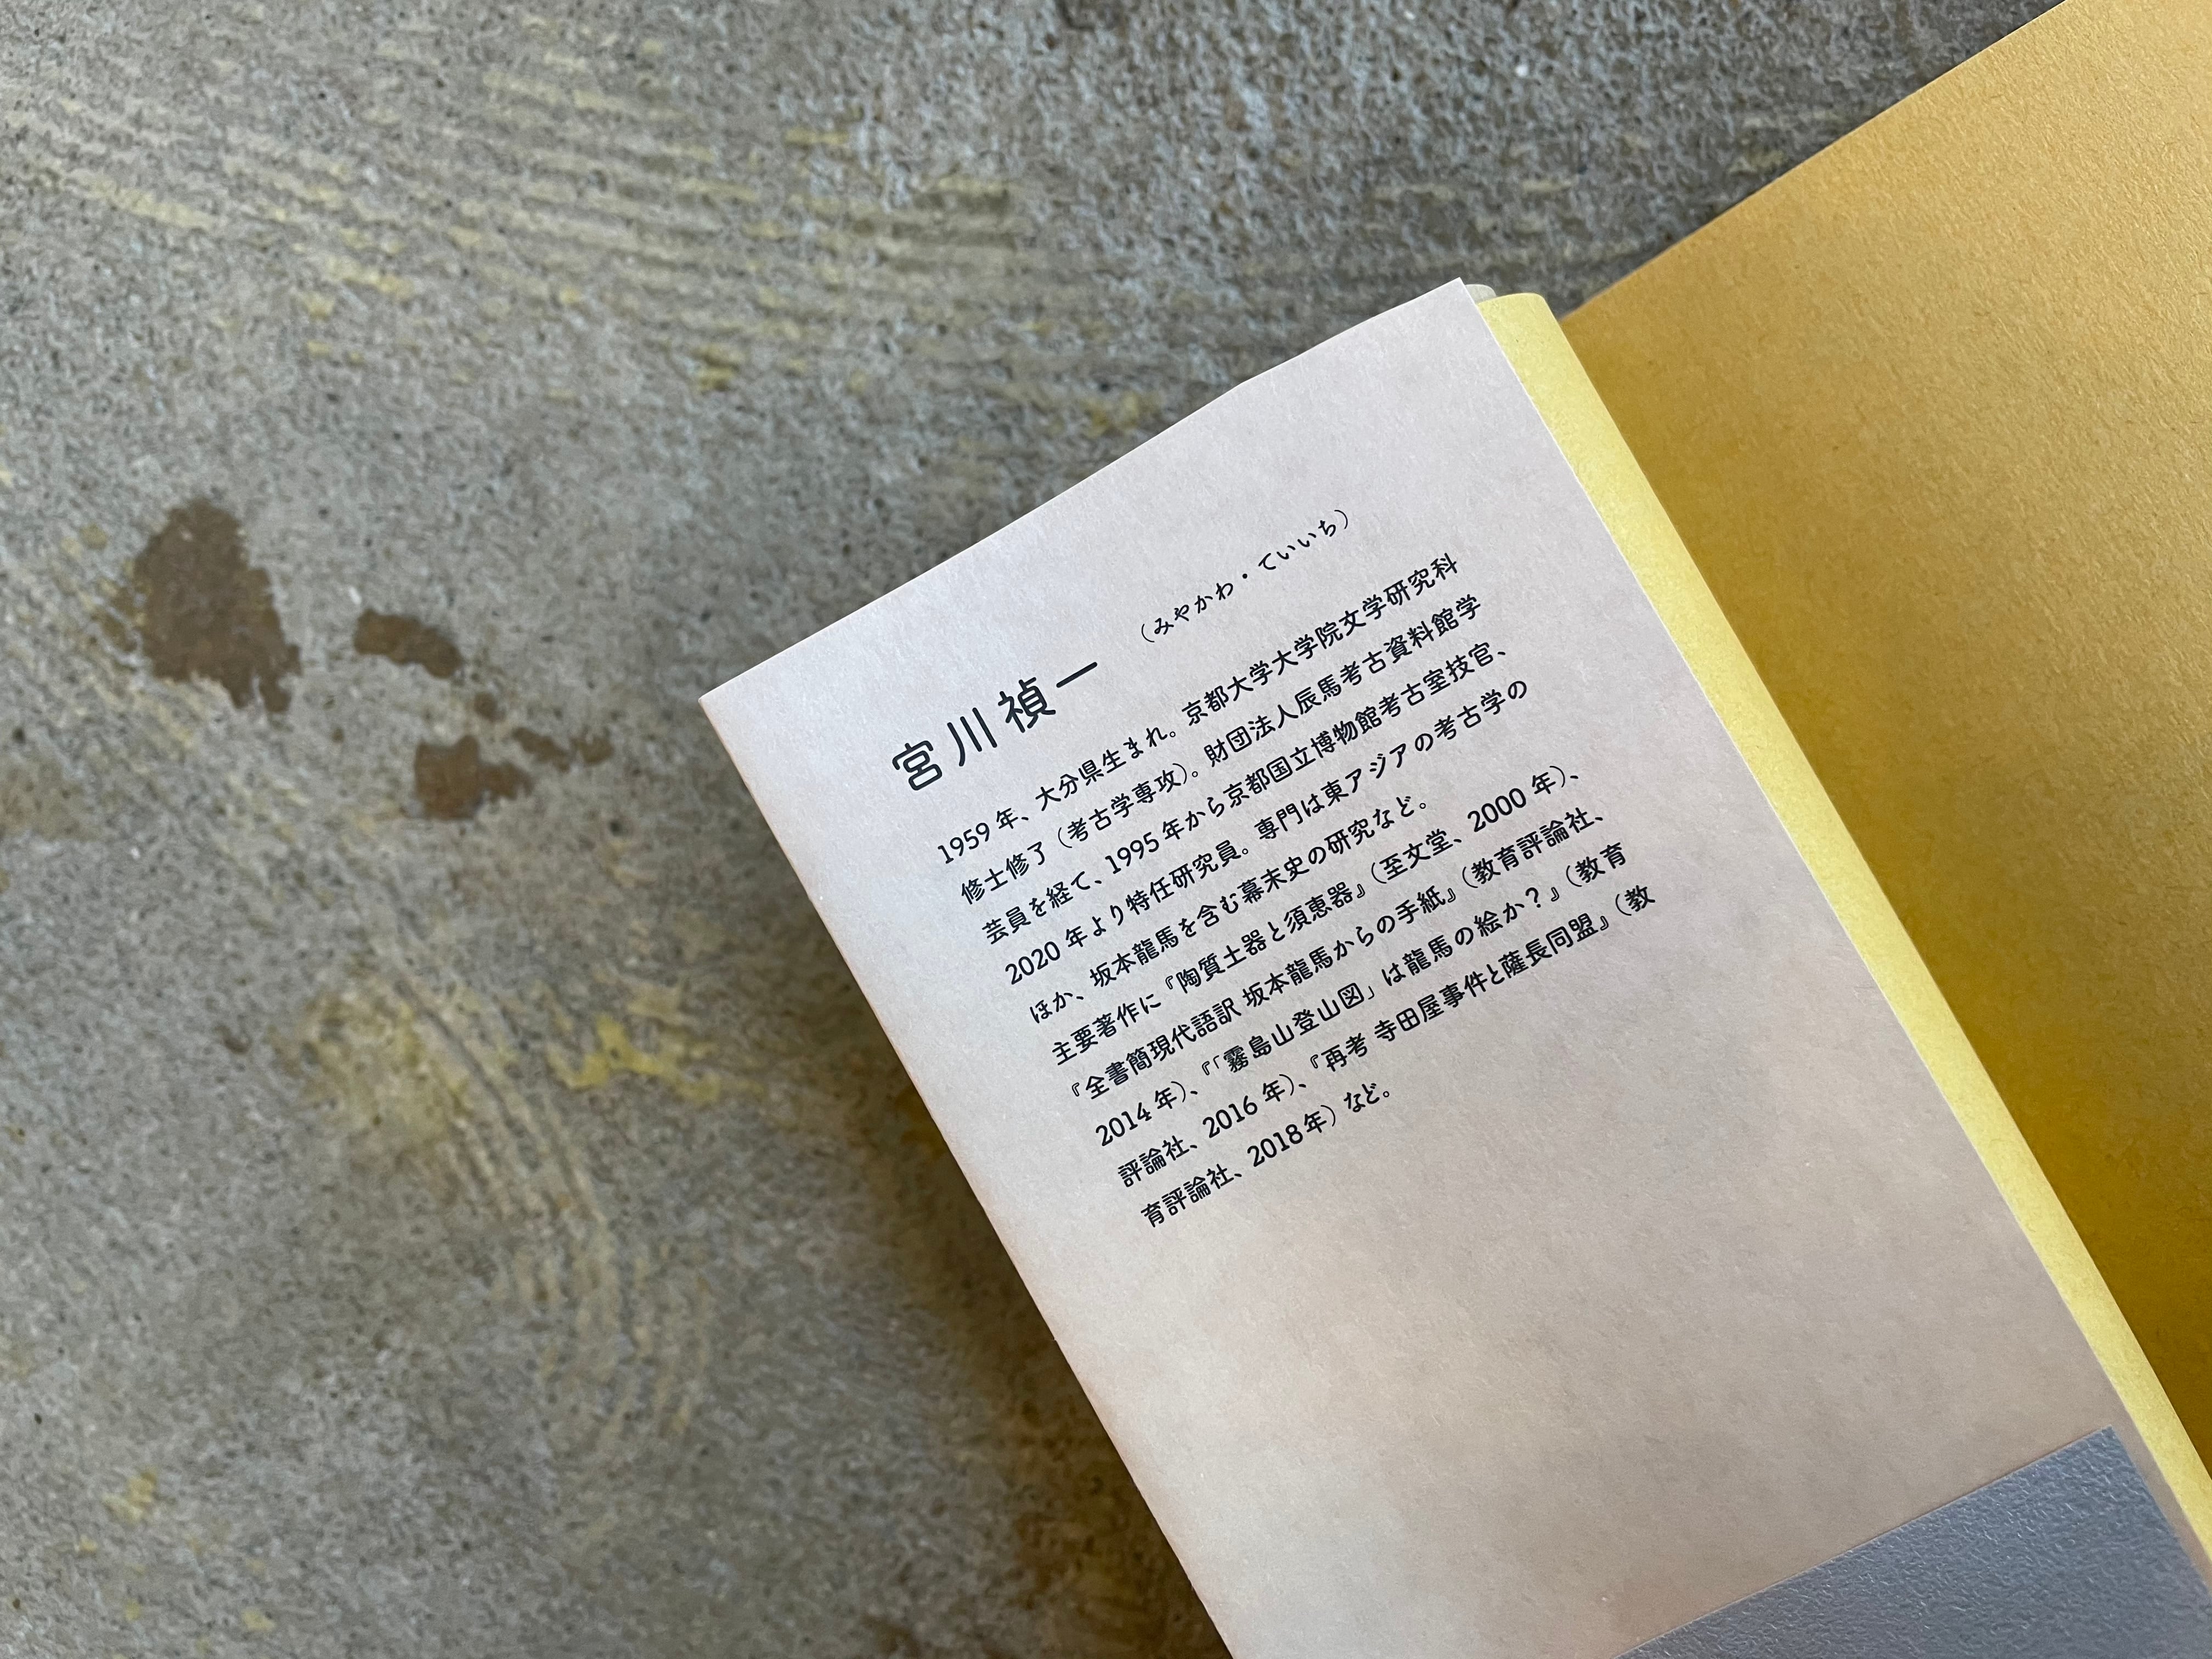 宮川禎一 （みやかわ・ていいち）
1959年、大分県生まれ。京都大学大学院文学研究科
修士修了（考古学専攻）。財団法人辰馬考古資料館学
芸員を経て、1995年から京都国立博物館考古室技官、
2020年より特任研究員。専門は東アジアの考古学の
ほか、坂本龍馬を含む幕末史の研究など。
主要著作に『陶質土器と須恵器』（至文堂、2000年）、
『全書簡現代語訳 坂本龍馬からの手紙』（教育評論社、
2014年）、『「霧島山登山図」は龍馬の絵か？』（教育
評論社、2016年）、『再考 寺田屋事件と薩長同盟』（教
育評論社、2018年）など。